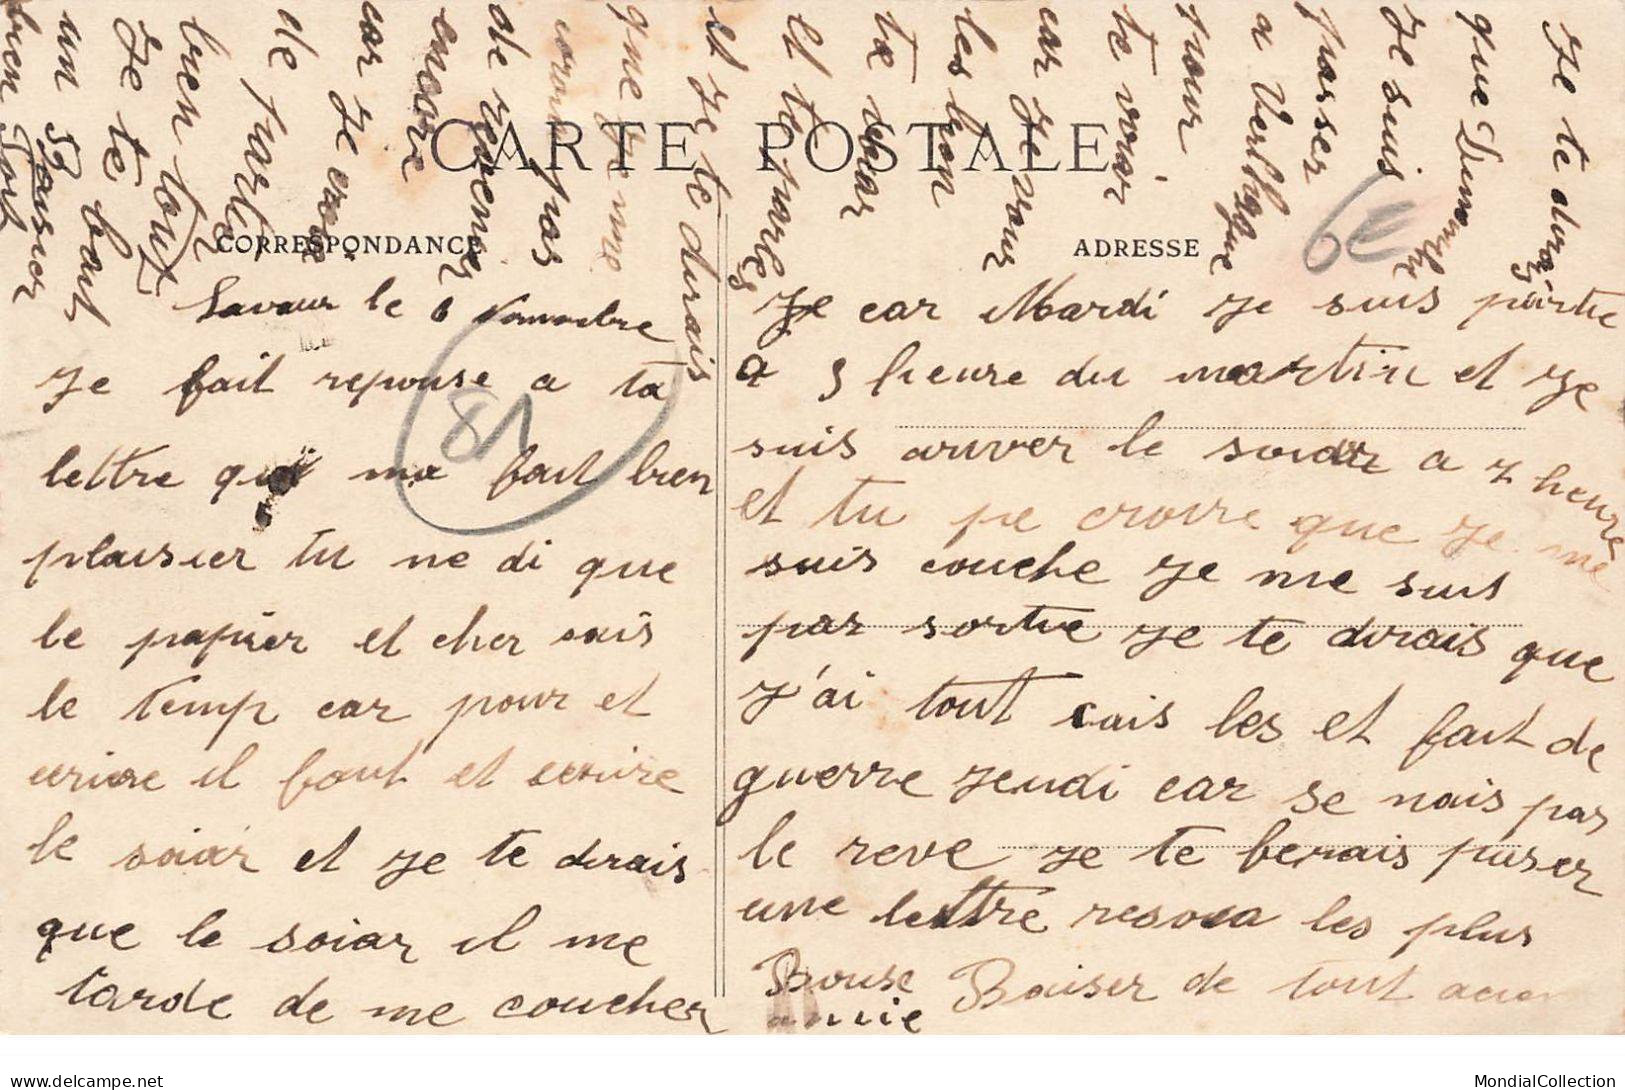 CARTE POSTALE
CORRESPONDANCE
ADRESSE
6E
81
Lavaur le 6 Novembre
Je fait reponse a ta
lettre qui ma fait bien
plaisier tu ne di que
le papier et cher cais
le temp car pour et
ecrire il fout et ecrire
le soiar et je te dirais
que le soiar il me
tarde de me coucher
Je car Mardi je suis partie
a 5 heure du martin et je
suis arriver le soiar a 7 heure
et tu pe croire que je me
suis couche je me suis
pas sortie je te dirais que
J'ai tout cais les et fait de
guerre jeudi car se nais pas
le reve je te ferais passer
une lettre resoua les plus
Bouse Baiser de tout
amie
Je te dirai
que Dimanche
Je suis
passer
a
pour
te voir
car je
les bon
te
et te parles
et je te dirais
que je me
pas
de revenir
encore
car je crois
de parle
bien tout
Je te
un Baiser
bien fort
MondialCollection
delcampe.net